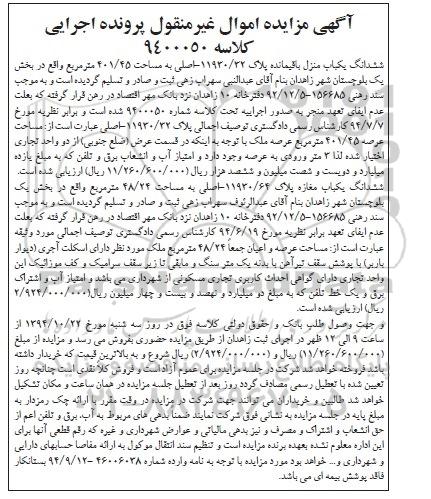 آگهی مزایده اموال غیرمنقول پرونده اجرایی
کلاسه ۹۴۰۰۰۵۰
ششدانگ یکباب منزل باقیمانده پلاک ۱۱۹۳۰/۳۲-اصلی به مساحت ۴۰۱/۴۵ مترمربع واقع در بخش
یک بلوچستان شهر زاهدان بنام آقای عبدالنبی سهراب زهی ثبت و صادر و تسلیم گردیده است و به موجب
سند رهنی ۱۵۶۶۸۵-۹۲/۱۲/۵ دفترخانه ۱۰ زاهدان نزد بانک مهر اقتصاد در رهن قرار گرفته که بعلت
عدم ایفای تعهد منجر به صدور اجراییه تحت کلاسه شماره ۹۴۰۰۰۵۰ شده است و برابر نظریه مورخ
۹۴/۷/۷ کارشناس رسمی دادگستری توصیف اجمالی پلاک ۱۱۹۳۰/۳۲-اصلی عبارت است از: مساحت
عرصه ۴۰۱/۴۵ مترمربع عرصه ملک با توجه به اینکه در قسمت عرض (ضلع جنوبی) از دو واحد تجاری
اختیار شده لذا ۳ متر ورودی به عرصه وجود دارد و امتیاز آب و انشعاب برق و تلفن که به مبلغ یازده
میلیارد و دویست و شصت میلیون و ششصد هزار ریال (۱۱/۲۶۰/۶۰۰/۰۰۰ ریال) ارزیابی شده است.
ششدانگ یکباب مغازه پلاک ۱۱۹۳۰/۶۴-اصلی به مساحت ۴۸/۲۴ مترمربع واقع در بخش یک
بلوچستان شهر زاهدان بنام آقای عبدالرئوف سهراب زهی ثبت و صادر و تسلیم گردیده است و به موجب
سند رهنی ۱۵۶۶۸۵-۹۲/۱۲/۵ دفترخانه ۱۰ زاهدان نزد بانک مهر اقتصاد در رهن قرار گرفته که بعلت
عدم ایفای تعهد برابر نظریه مورخ ۹۴/۶/۱۹ کارشناس رسمی دادگستری توصیف اجمالی مورد وثیقه
عبارت است از: مساحت عرصه و اعیان جمعا ۴۸/۲۴ مترمربع ملک مورد نظر دارای اسکلت آجری (دیوار
باربر) با پوشش سقف تیرآهن با بدنه یک متر سنگ و مابقی تا زیر سقف سرامیک و کف موزائیک این
واحد تجاری دارای گواهی احداث کاربری تجاری مسکونی از شهرداری می باشد و امتیاز آب و اشتراک
برق و یک خط تلفن که به مبلغ دو میلیارد و نهصد و بیست و چهار میلیون ریال(۲/۹۲۴/۰۰۰/۰۰۰
ریال) ارزیابی شده است.
و جهت وصول طلب بانک و حقوق دولتی کلاسه فوق در روز سه شنبه مورخ ۱۳۹۴/۱۰/۲۲ از
ساعت ۹ الی ۱۲ ظهر در اجرای ثبت زاهدان از طریق مزایده حضوری بفروش می رسد و مزایده از مبلغ
(۱۱/۲۶۰/۶۰۰/۰۰۰) ریال و (۲/۹۲۴/۰۰۰/۰۰۰) ریال شروع و به بالاترین قیمت که خریدار داشته
باشد فروخته خواهد شد شرکت در جلسه مزایده برای عموم آزاد است و فروش کلا نقدی است چنانچه روز
تعیین شده با تعطیل رسمی مصادف گردد روز بعد از تعطیل جلسه مزایده در همان ساعت و مکان تشکیل
خواهد شد طالبین و خریداران می توانند جهت شرکت در مزایده در وقت مقرر با ارائه چک رمزدار به
مبلغ پایه در جلسه مزایده به نشانی فوق شرکت نمایند ضمنا بدهی های مربوط به آب، برق و تلفن اعم از
حق انشعاب و اشتراک و مصرف و نیز بدهی مالیاتی و عوارض شهرداری و غیره که رقم قطعی آنها برای
این اداره معلوم نشده بعهده برنده مزایده است و تنظیم سند انتقال موکول به ارائه مفاصا حسابهای دارایی
و شهرداری و... خواهد بود مورد مزایده با توجه به نامه وارده شماره ۴۶۰۰۶۰۳۸-۹۴/۹/۱۲ بستانکار
فاقد پوشش بیمه ای می باشد.